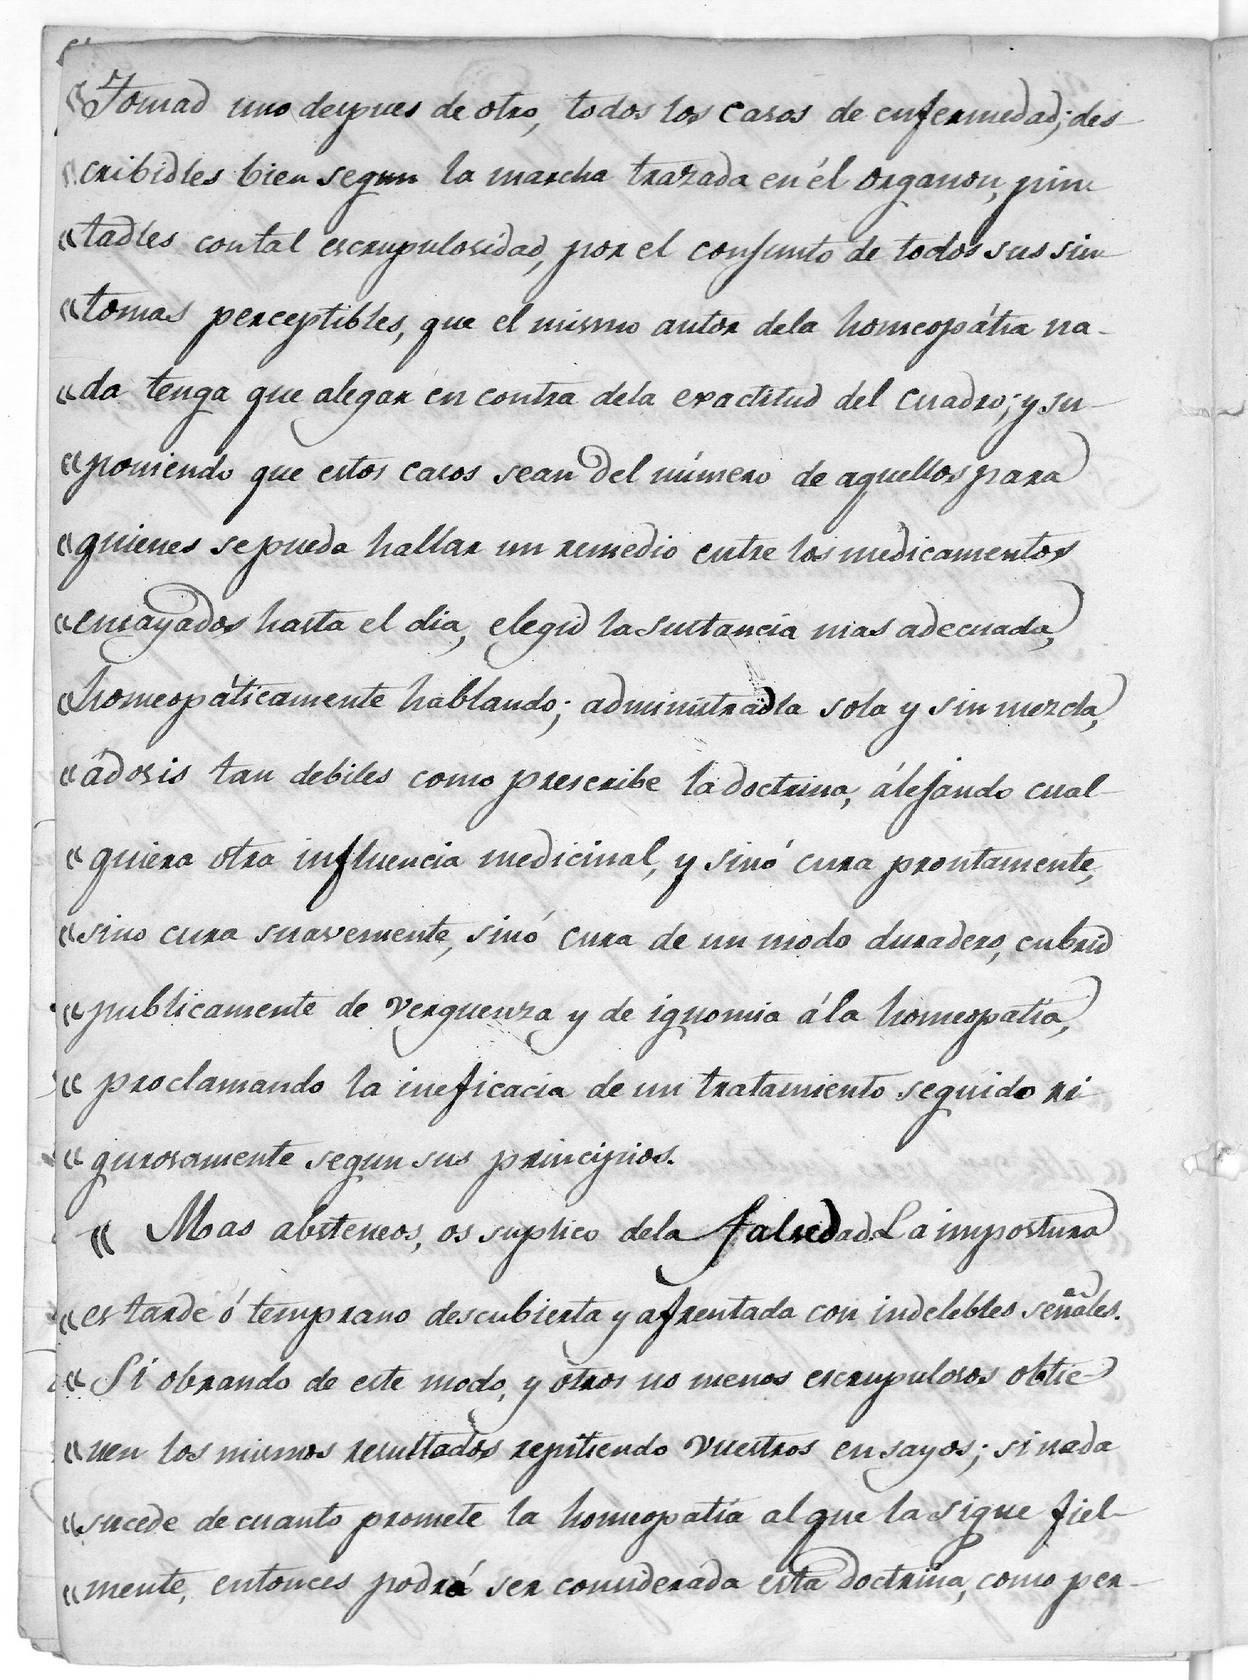 «Tomad uno despues de otro, todos los casos de enfermedad; des
«cribidles bien segun la marcha trazada en él organon, pin
«tadles contal escrupulosidad, por el conjunto de todos sus sin
«tomas perceptibles, que el mismo autor dela homeopátia na-
«da tenga que alegar en contra dela exactitud del cuadro; y su-
«poniendo que estos casos sean del número de aquellos para
«quienes se pueda hallar un remedio entre los medicamentos
«ensayados hasta el dia, elegid la sustancia mas adecuada,
«homeopáticamente hablando; administradla sola y sin mezcla,
«ádosis tan debiles como prescribe la doctrina, álejando cual-
«quiera otra influencia medicinal, y sinó cura prontamente,
«sino cura suavemente, sinó cura de un modo duradero, cubrid
«publicamente de verguenza y de ignomia ála homeopatía,
«proclamando la ineficacia de un tratamiento seguido ri
«gurosamente segun sus principios.
«Mas absteneos, os suplico dela falsedad. La impostura
«es tarde ó temprano descubierta y afrentada con indelebles señales.
«Si obrando de este modo, y otros no menos escrupulosos obtie
«nen los mismos resultados repitiendo vuestros ensayos; si nada
«sucede de cuanto promete la homeopatía al que la sigue fiel-
«mente, entonces podrá ser considerada esta doctrina, como per-